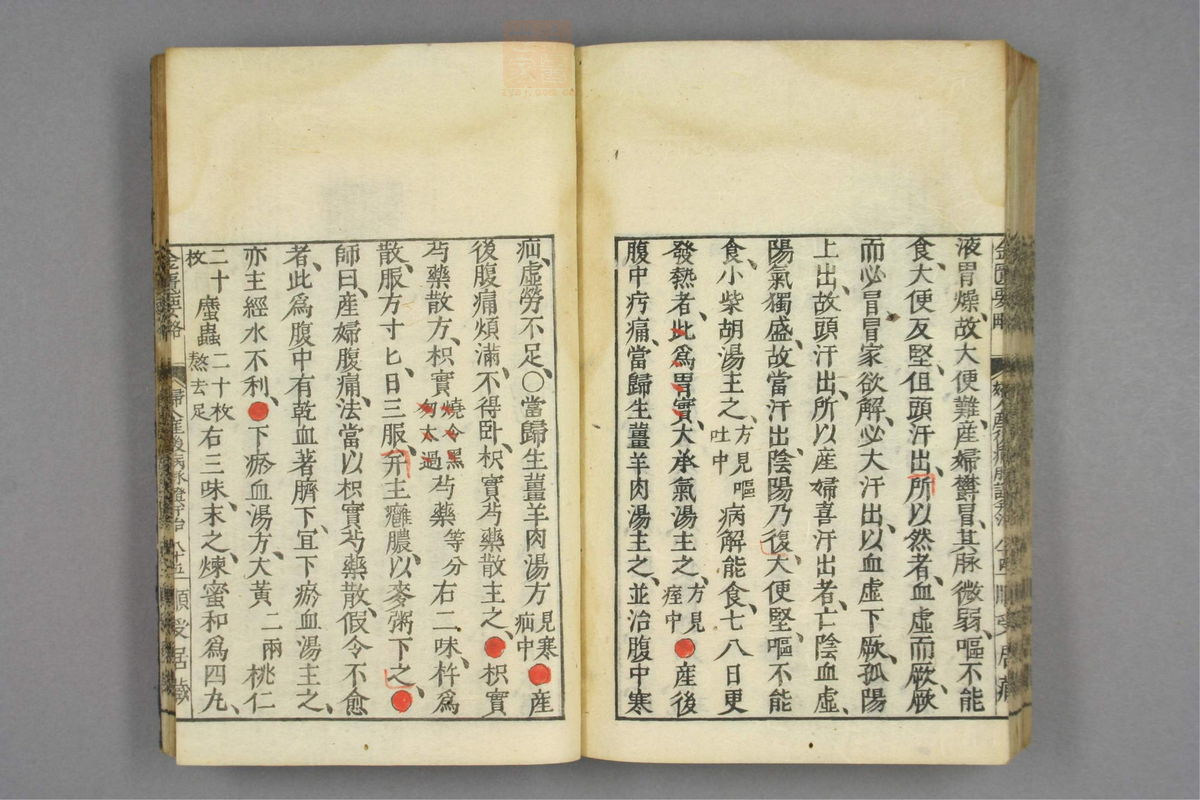 液胃燥、故大便難、産婦欝冒、其脉微弱、嘔不能
食、大便反堅、但頭汗出、所以然者、血虛而厥、厥
而必冒、冒家欲解、必大汗出、以血虛下厥、孤陽
上出、故頭汗出、所以産婦喜汗出者、亡陰血虛、
陽氣獨盛、故當汗出、陰陽乃復、大便堅、嘔不能
食、小柴胡湯主之、方見嘔吐中 病解能食、七八日更
發熱者、此爲胃實、大承氣湯主之、方見痓中 ●産後
腹中㽲痛、當歸生薑羊肉湯主之、並治腹中寒
疝、虛勞不足、○當歸生薑羊肉湯方 見寒疝中 ●産
後腹痛、煩滿、不得卧、枳實芍藥散主之、●枳實
芍藥散方、枳實 燒令黑勿太過 芍藥 等分 右二味、杵爲
散、服方寸匕、日三服、并主癰膿、以麥粥下之、●
師曰、産婦腹痛、法當以枳實芍藥散、假令不愈
者、此爲腹中有乾血著臍下、宜下瘀血湯主之、
亦主經水不利、●下瘀血湯方、大黃 二兩 桃仁
二十枚 䗪蟲 二十枚熬去足 右三味、末之、煉蜜和爲四丸、